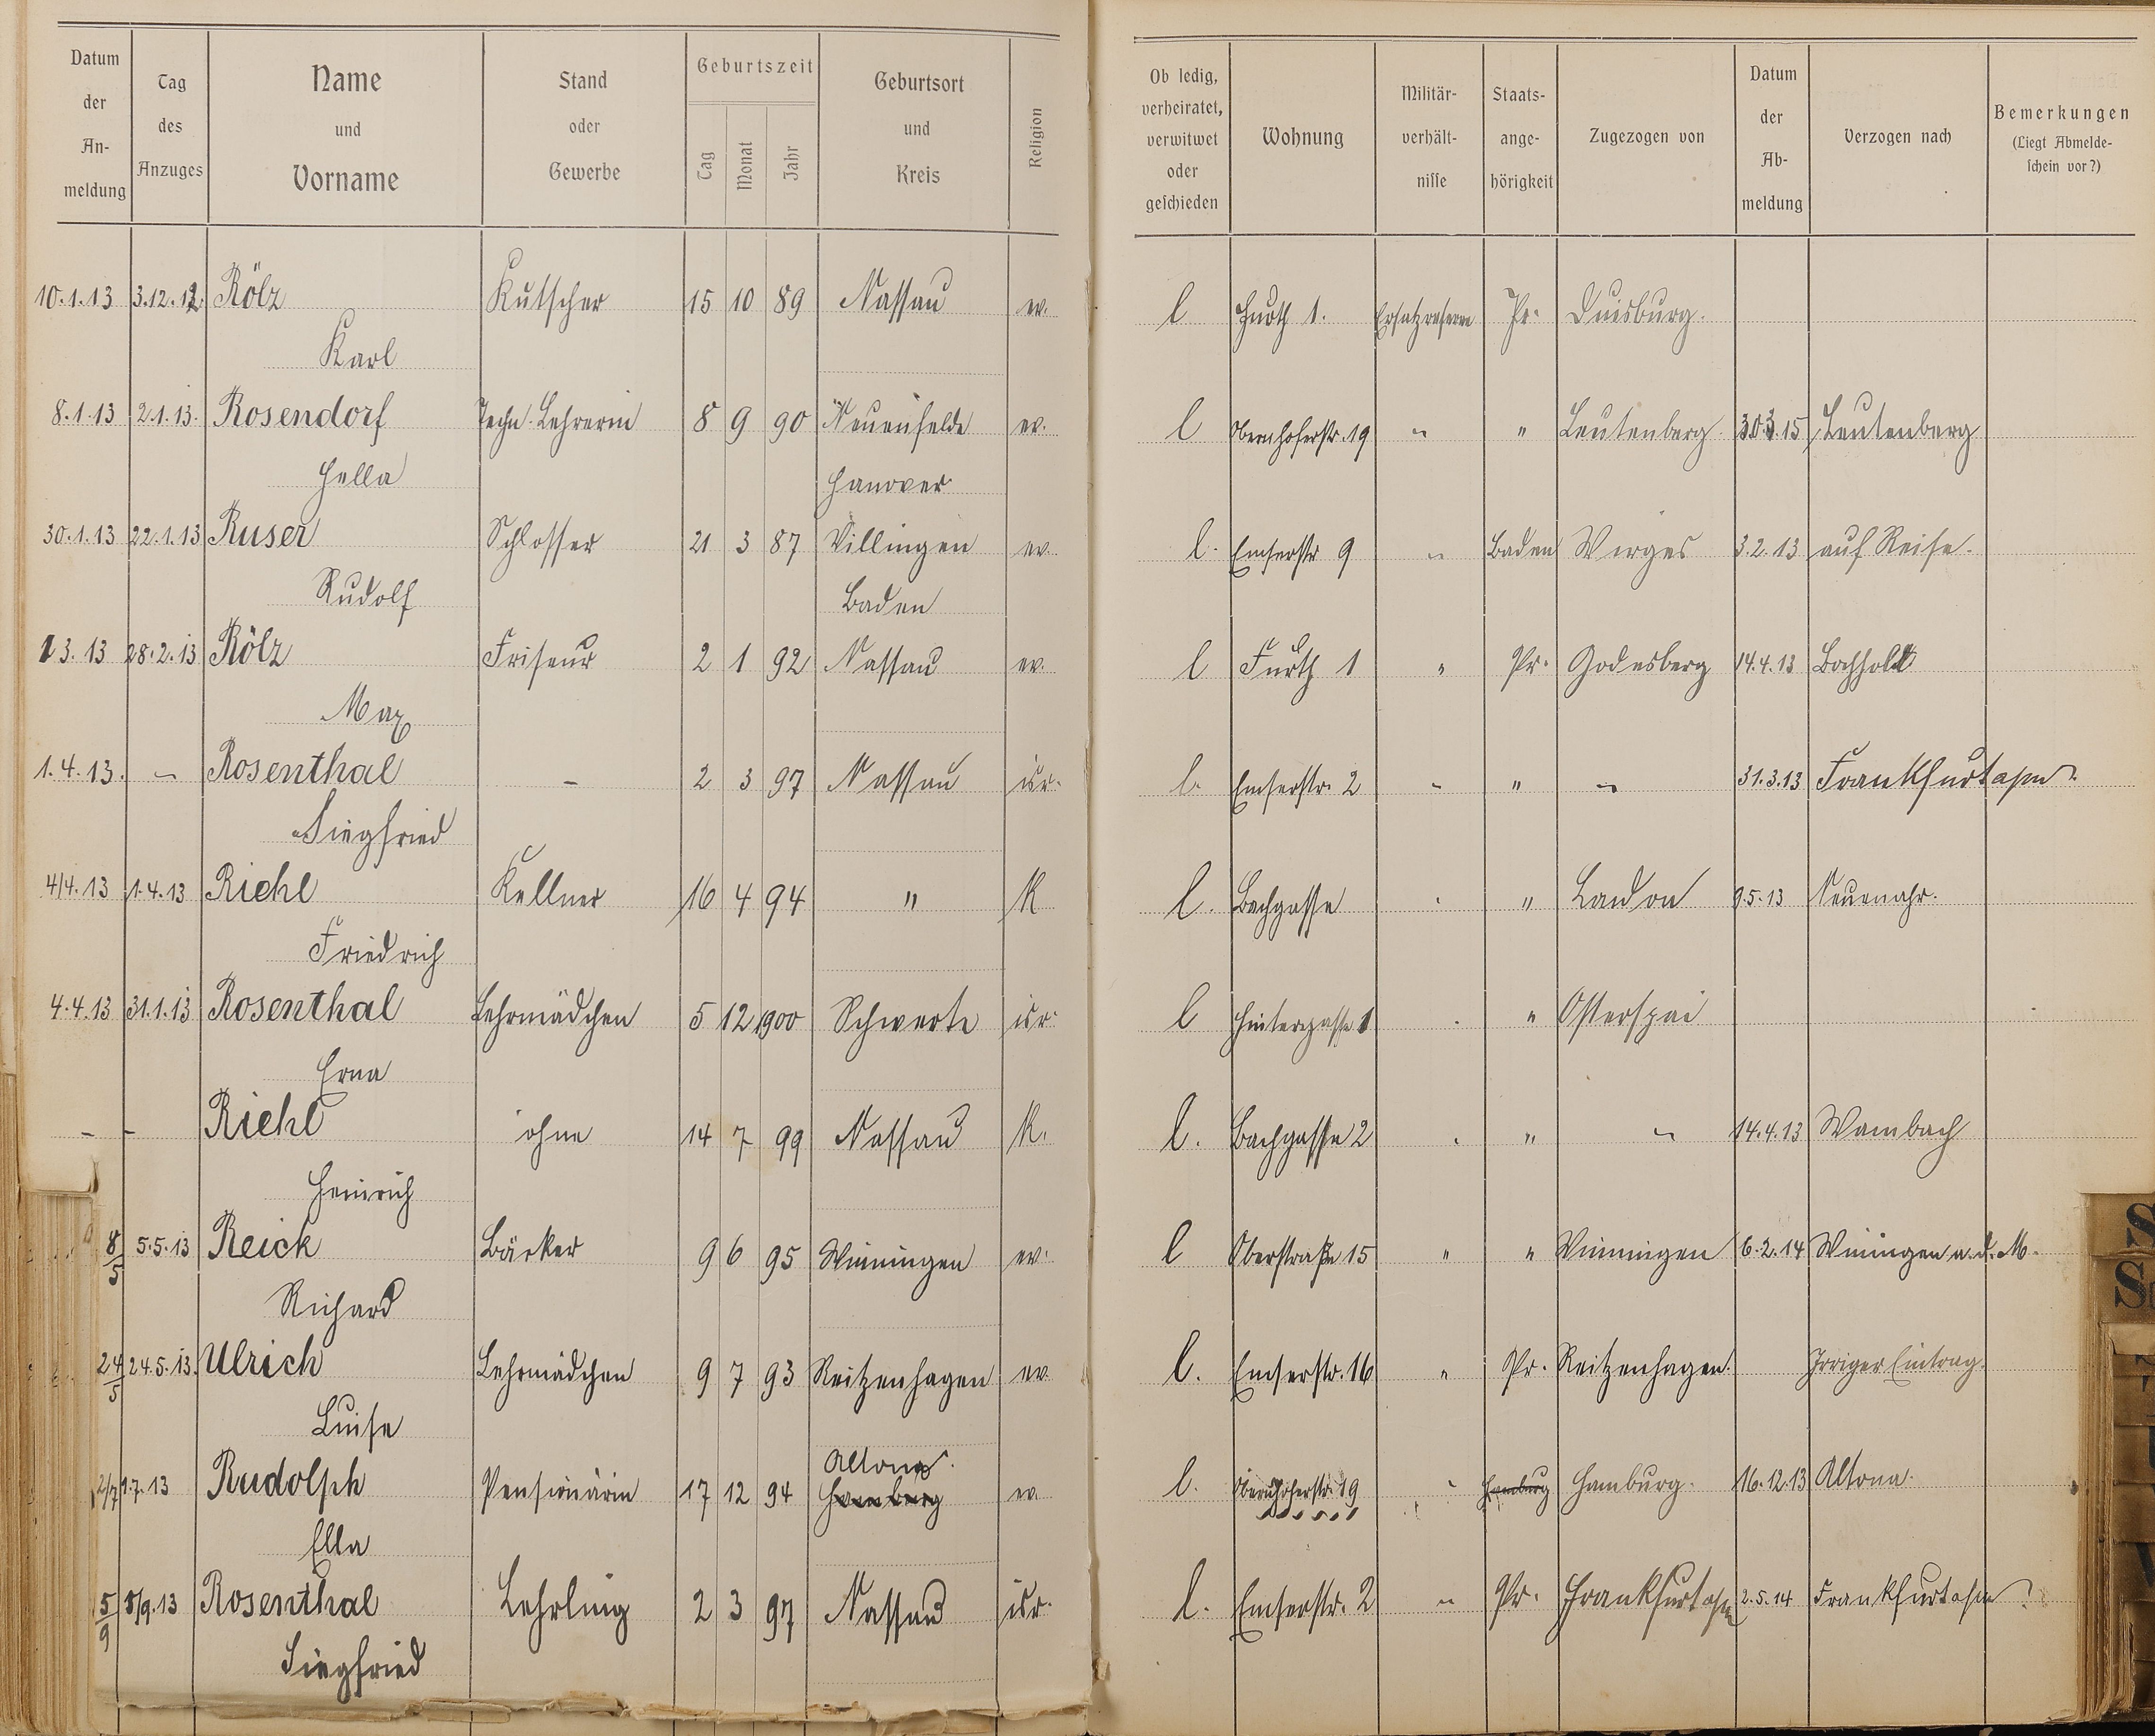 Datum der An-meldung | Tag des Anzuges | Name und Vorname | Stand oder Gewerbe | Geburtszeit Tag Monat Jahr | Geburtsort und Kreis | Religion | Ob ledig, verheiratet, verwitwet oder geschieden | Wohnung | Militär-verhält-nisse | Staats-ange-hörigkeit | Zugezogen von | Datum der Ab-meldung | Verzogen nach | Bemerkungen (Liegt Abmelde-schein vor?)
10.1.13 3.12.12 Rölz Kutscher 15 10 89 Nassau ev. l Furth 1. Ersatzreserve Pr. Duisburg.
Karl
8.1.13 2.1.13. Rosendorf Techn. Lehrerin 8 9 90 Neuenfelde ev. l Obernhoferstr. 19 " " Leutenberg 30.3.15 Leutenberg
Hella Hanover
30.1.13 22.1.13 Ruser Schlosser 21 3 87 Villingen ev. l. Emserstr 9 " Baden Wirges 3.2.13 auf Reise.
Rudolf Baden
1 3. 13 28.2.13 Rölz Friseur 2 1 92 Nassau ev. l Furth 1 " Pr. Godesberg 14.4.13 Bochholt
Max
1.4.13. – Rosenthal – 2 3 97 Nassau isr. l. Emserstr. 2 " " – 31.3.13 Frankfurt a/m.
Siegfried
4/4.13 1.4.13 Riehl Kellner 16 4 94 " K l. Bachgasse " Landon 9.5.13 Neuenahr.
Friedrich
4.4.13 31.1.13 Rosenthal Lehrmädchen 5 12 1900 Schwerte isr. l Hintergasse 1 " Osterspai
Erna
– – Riehl ohne 14 7 99 Nassau K. l. Bachgasse 2 " – 14.4.13 Wambach
Heinrich
8/5 5.5.13 Reick Bäcker 9 6 95 Winningen ev. l Oberstraße 15 " " Winningen 6.2.14 Winingen a. d. M.
Richard
24/5 24.5.13. Ulrich Lehrmädchen 9 7 93 Reitzenhagen ev. l. Emserstr. 16 " Pr. Reitzenhagen. Irriger Eintrag.
Luise
Altona.
2/7 1.7.13 Rudolph Pensionärin 17 12 94 Hamburg ev. l. Obernhoferstr. 19 " Hamburg Hamburg. 16.12.13 Altona.
Ella
5/9 5/9.13 Rosenthal Lehrling 2 3 97 Nassau isr. l. Emserstr. 2 " Pr. Frankfurt a/m 2.5.14 Frankfurt a/m
Siegfried